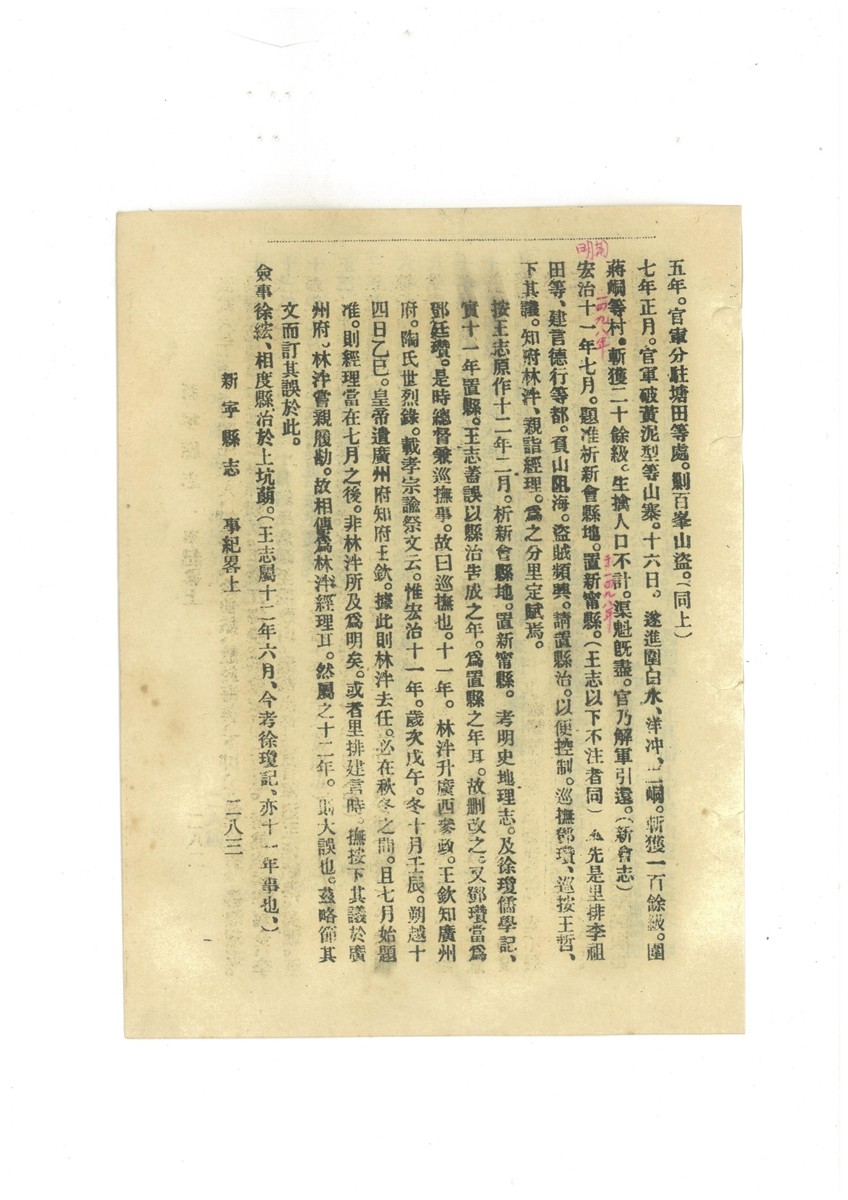 五年。官軍分駐塘田等處。剿百峯山盜。（同上）
七年正月。官軍破黃泥型等山寨。十六日，遂進圍白水、洋冲、二峒。斬獲一百餘級。圍
蔣峒等村。斬獲二十餘級。生擒人口不計。渠魁旣盡。官乃解軍引還。（新會志）
宏治十一年七月。題准析新會縣地。置新甯縣。（王志以下不注者同）先是里排李祖
田等、建言德行等都。負山阻海。盜賊頻興。請置縣治。以便控制。巡撫鄧瓚、巡按王哲、
下其議。知府林泮、親詣經理。爲之分里定賦焉。
按王志原作十二年二月。析新會縣地。置新甯縣。考明史地理志。及徐瓊儒學記、
實十一年置縣。王志蓄誤以縣治告成之年。爲置縣之年耳。故刪改之。又鄧瓚當爲
鄧廷瓚。是時總督兼巡撫事。故曰巡撫也。十一年。林泮升廣西參政。王欽知廣州
府。陶氏世烈錄。載孝宗諭祭文云。惟宏治十一年。歲次戊午。冬十月壬辰。朔越十
四日乙巳。皇帝遣廣州府知府王欽。據此則林泮去任。必在秋冬之間。且七月始題
准。則經理當在七月之後。非林泮所及爲明矣。或者里排建言時。撫按下其議於廣
州府。林泮嘗親履勘。故相傳爲林泮經理耳。然屬之十二年。則大誤也。茲略節其
文而訂其誤於此。
僉事徐紘、相度縣治於上坑蓢。（王志屬十二年六月、今考徐瓊記、亦十一年事也、）
新寧縣志　事紀畧上
二八三
明
一四九八年
一四九八年